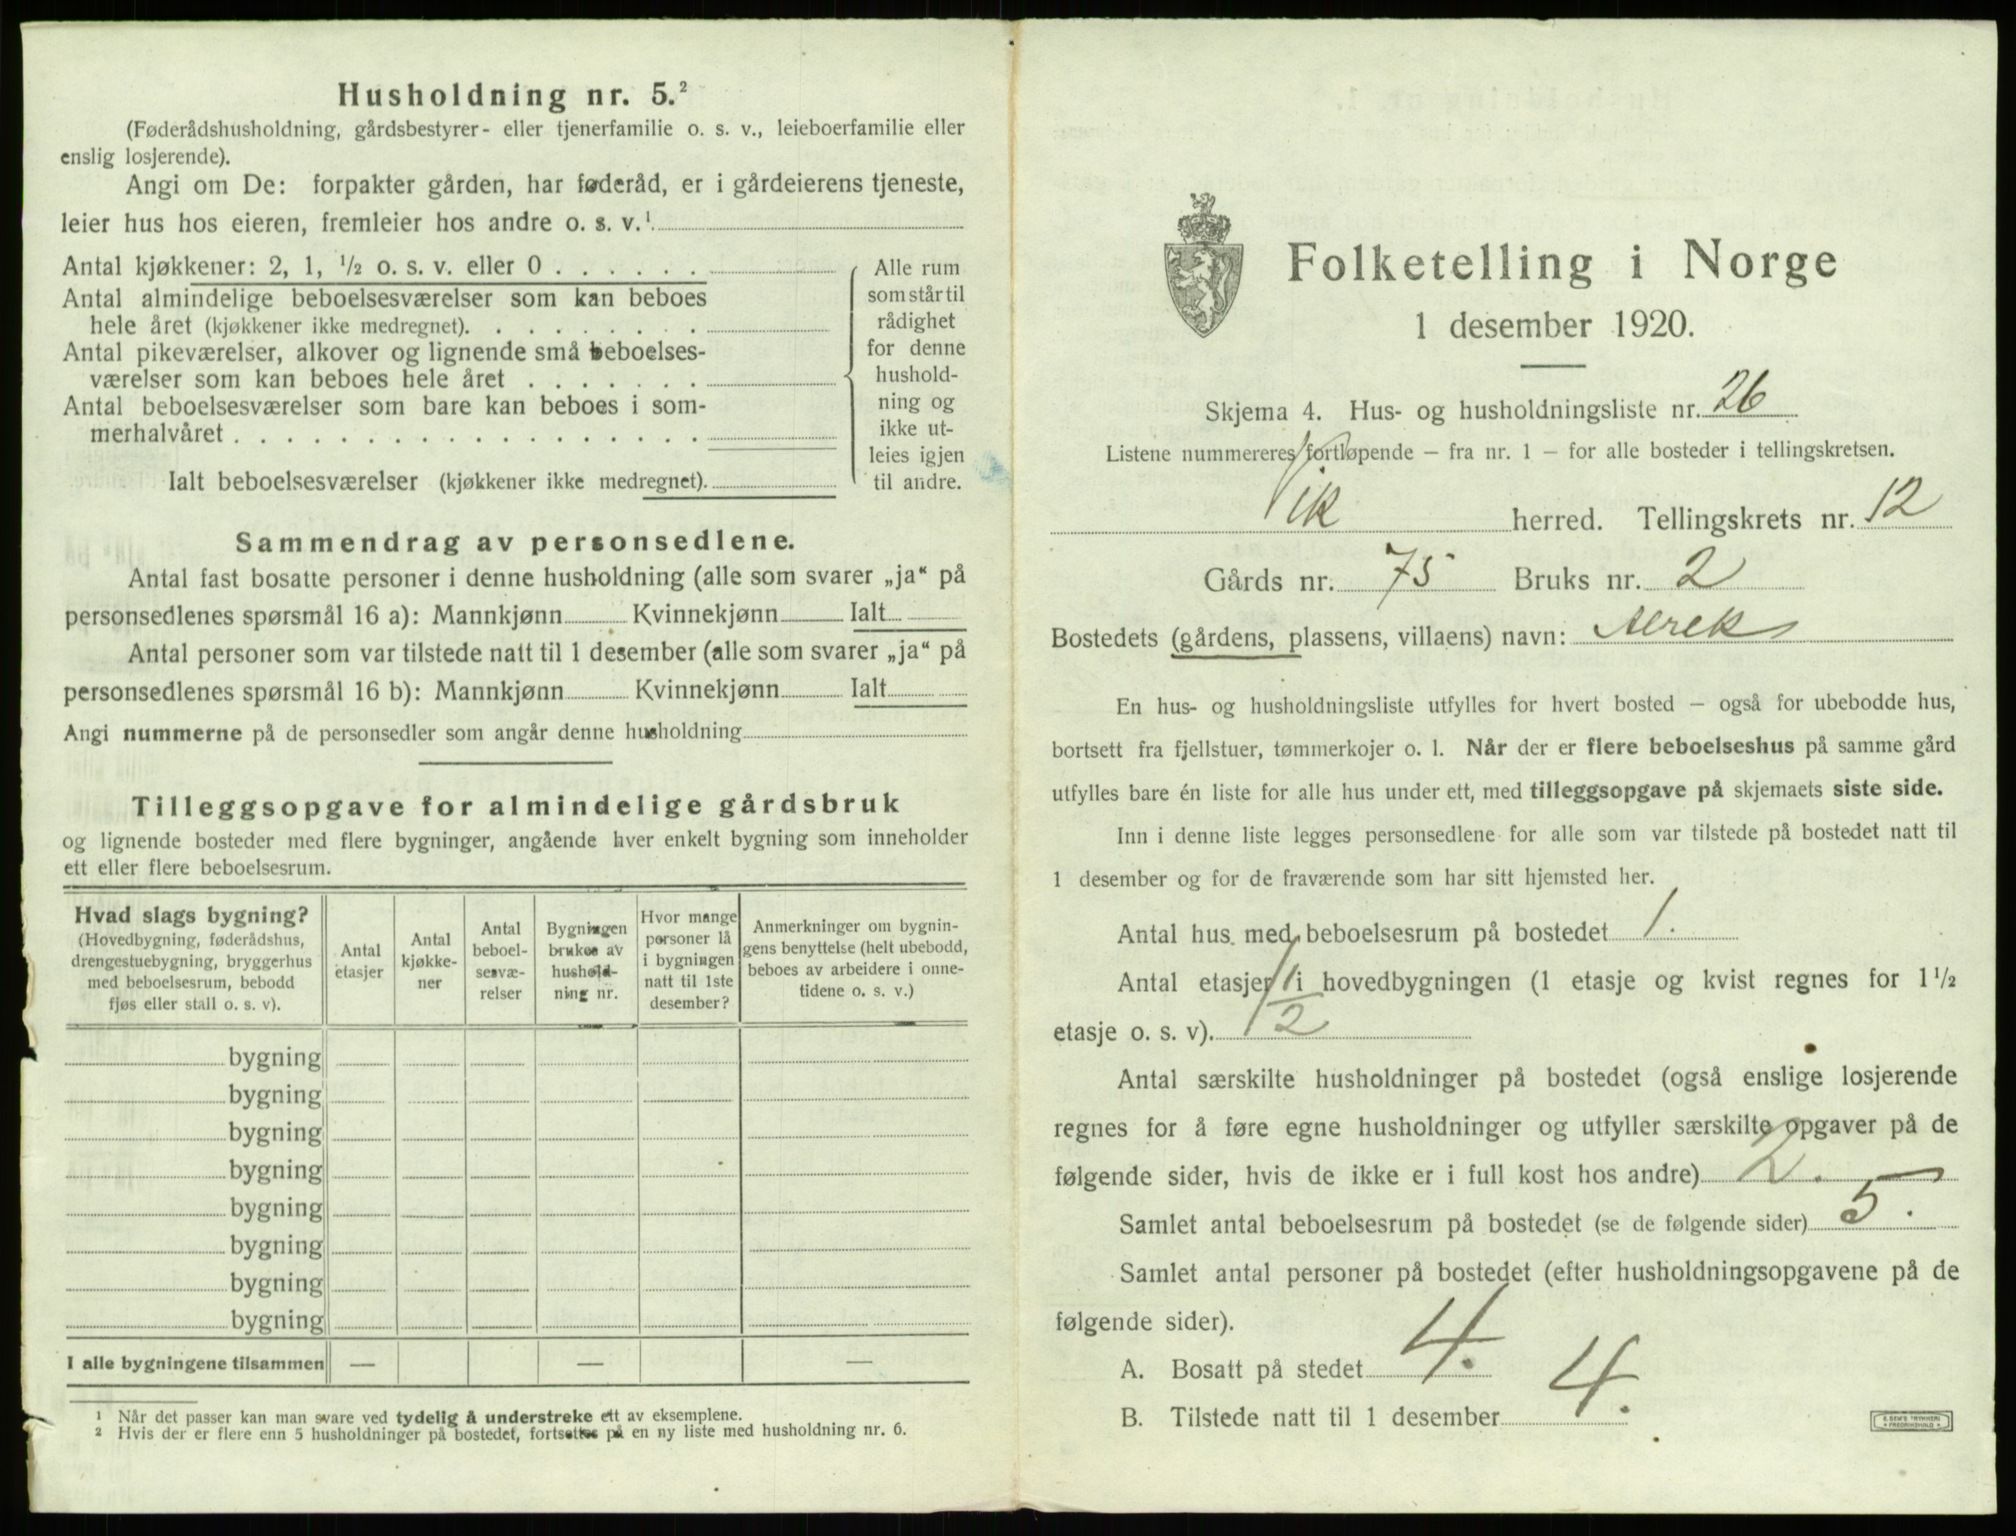 Husholdning nr. 5.²
(Føderådshusholdning, gårdsbestyrer- eller tjenerfamilie o. s. v., leieboerfamilie eller
enslig losjerende).
Angi om De: forpakter gården, har føderåd, er i gårdeierens tjeneste,
leier hus hos eieren, fremleier hos andre o. s. v.¹
Antal kjøkkener: 2, 1, ½ o. s. v. eller 0 . . . . . .
Antal almindelige beboelsesværelser som kan beboes
hele året (kjøkkener ikke medregnet). . . . . . . . .
Antal pikeværelser, alkover og lignende små beboelses-
værelser som kan beboes hele året . . . . . . .
Antal beboelsesværelser som bare kan beboes i som-
merhalvåret . . . . . . . . . . . . . . . . . .
Ialt beboelsesværelser (kjøkkener ikke medregnet).
Alle rum
som står til
rådighet
for denne
hushold-
ning og
ikke ut-
leies igjen
til andre.
Sammendrag av personsedlene.
Antal fast bosatte personer i denne husholdning (alle som svarer „ja“ på
personsedlenes spørsmål 16 a): Mannkjønn Kvinnekjønn Ialt
Antal personer som var tilstede natt til 1 desember (alle som svarer „ja“ på
personsedlenes spørsmål 16 b): Mannkjønn Kvinnekjønn Ialt
Angi nummerne på de personsedler som angår denne husholdning
Tilleggsopgave for almindelige gårdsbruk
og lignende bosteder med flere bygninger, angående hver enkelt bygning som inneholder
ett eller flere beboelsesrum.
Hvad slags bygning?
(Hovedbygning, føderådshus,
drengestuebygning, bryggerhus
med beboelsesrum, bebodd
fjøs eller stall o. s. v).
Antal
etasjer
Antal
kjøkke-
ner
Antal
beboel-
sesvæ-
relser
Bygningen
brukes av
hushold-
ning nr.
Hvor mange
personer lå
i bygningen
natt til 1ste
desember?
Anmerkninger om bygnin-
gens benyttelse (helt ubebodd,
beboes av arbeidere i onne-
tidene o. s. v.)
bygning
bygning
bygning
bygning
bygning
bygning
bygning
bygning
I alle bygningene tilsammen — — —
¹ Når det passer kan man svare ved tydelig å understreke ett av eksemplene.
² Hvis der er flere enn 5 husholdninger på bostedet, fortsettes på en ny liste med husholdning nr. 6.
Folketelling i Norge
1 desember 1920.
Skjema 4. Hus- og husholdningsliste nr. 26
Listene nummereres fortløpende – fra nr. 1 – for alle bosteder i tellingskretsen.
Vik herred. Tellingskrets nr. 12
Gårds nr. 75 Bruks nr. 2
Bostedets (gårdens, plassens, villaens) navn:
En hus- og husholdningsliste utfylles for hvert bosted – også for ubebodde hus,
bortsett fra fjellstuer, tømmerkojer o. l. Når der er flere beboelseshus på samme gård
utfylles bare én liste for alle hus under ett, med tilleggsopgave på skjemaets siste side.
Inn i denne liste legges personsedlene for alle som var tilstede på bostedet natt til
1 desember og for de fraværende som har sitt hjemsted her.
Antal hus med beboelsesrum på bostedet 1.
Antal etasjer i hovedbygningen (1 etasje og kvist regnes for 1½
etasje o. s. v). 1½
Antal særskilte husholdninger på bostedet (også enslige losjerende
regnes for å føre egne husholdninger og utfyller særskilte opgaver på de
følgende sider, hvis de ikke er i full kost hos andre) 2.
Samlet antal beboelsesrum på bostedet (se de følgende sider) 5.
Samlet antal personer på bostedet (efter husholdningsopgavene på de
følgende sider).
A. Bosatt på stedet 4.
B. Tilstede natt til 1 desember 4.